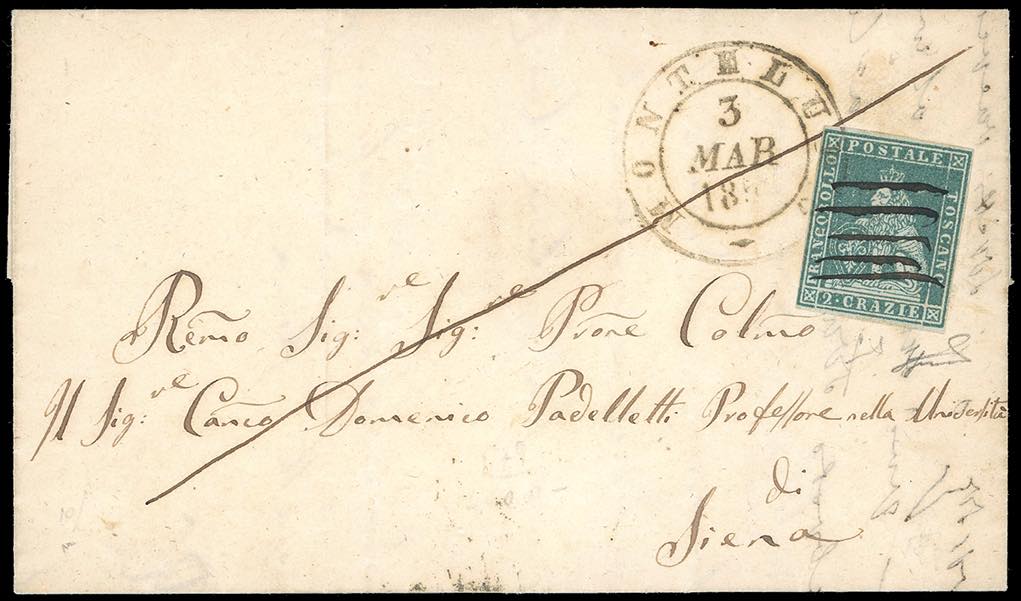 MONTELU
3
MAR
185
FRANCOBOLLO POSTALE TOSCANO
2·CRAZIE
Remo Sig:re Sig:re Prone Colmo
Il Sig:re Canco Domenico Padelletti Professore nella Università
di
Siena